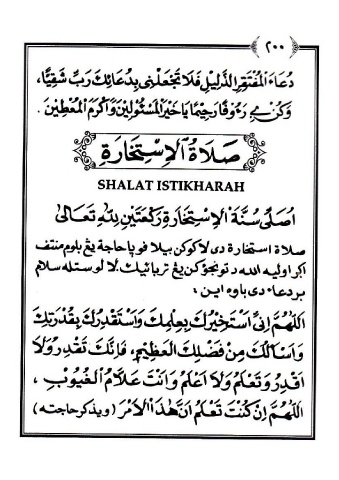 ٢٠٠
دُعَاءَ الْمُفْتَقِرِ الذَّلِيلِ فَلَا تَجْعَلْنِى بِدُعَائِكَ رَبِّ شَقِيًّا،
وَكُنْ بِى رَءُوفًا رَحِيمًا يَا خَيْرَ الْمَسْئُولِيْنَ وَأَكْرَمَ الْمُعْطِيْنَ.
صَلَاةُ الْإِسْتِخَارَةِ
SHALAT ISTIKHARAH
اُصَلِّى سُنَّةَ الْإِسْتِخَارَةِ رَكْعَتَيْنِ لِلّٰهِ تَعَالَى
صلاة استخارة دى لاكوكن بيلا فوپا حاجة يڠ بلوم منتف
اڮر اوليه الله دتونجوكن يڠ تربائيك. لالو ستله سلام
بردعاء دى باوه اين:
اَللّٰهُمَّ اِنِّى اَسْتَخِيْرُكَ بِعِلْمِكَ وَاَسْتَقْدِرُكَ بِقُدْرَتِكَ
وَاَسْأَلُكَ مِنْ فَضْلِكَ الْعَظِيْمِ، فَاِنَّكَ تَقْدِرُ وَلَا
اَقْدِرُ وَتَعْلَمُ وَلَا اَعْلَمُ وَاَنْتَ عَلَّامُ الْغُيُوْبِ،
اَللّٰهُمَّ اِنْ كُنْتَ تَعْلَمُ اَنَّ هٰذَا الْاَمْرَ (ويذكر حاجته)